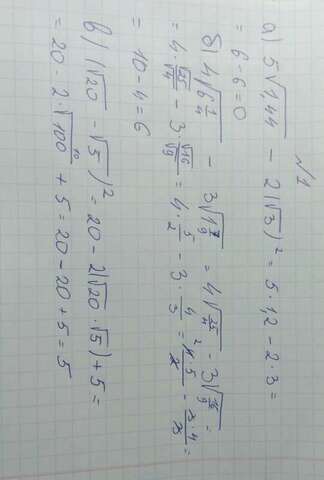 №1
а) 5√1,44 − 2(√3)² = 5·1,2 − 2·3 =
= 6−6=0
б) 4√6 1/4 − 3√1 7/9 = 4√25/4 − 3√16/9 =
= 4·√25/√4 − 3·√16/√9 = 4·5/2 − 3·4/3 = 4·5/2 − 3·4/3 =
= 10−4=6
в) (√20 − √5)² = 20 − 2(√20·√5) + 5 =
= 20 − 2·√100 10 + 5 = 20−20+5=5